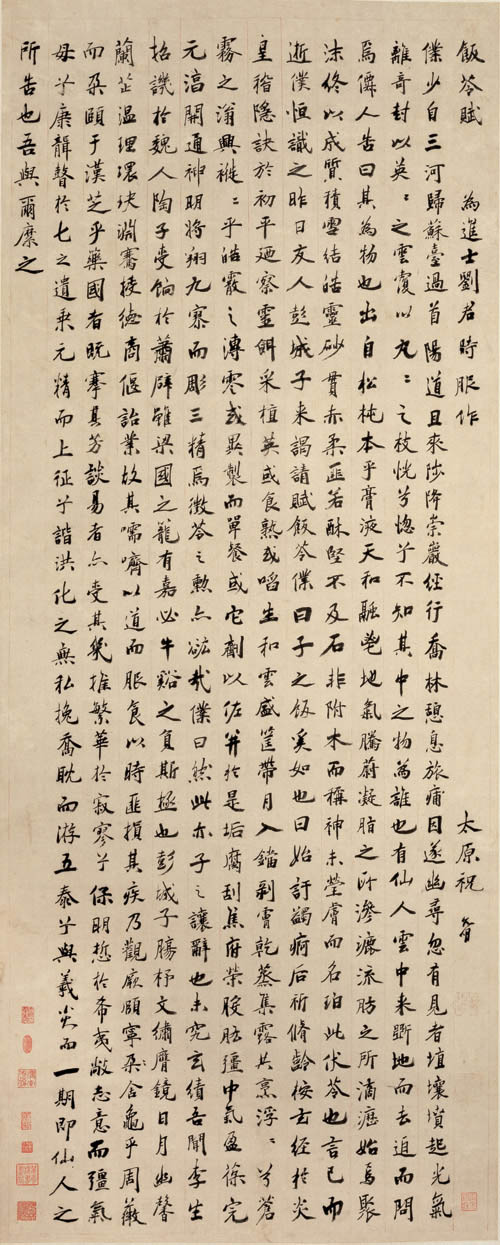 飯苓賦 為進士劉君時服作 太原祝
僕少自三河歸蘇臺過首陽道且來陟降崇巖經行喬林憩息旅痡因遂幽尋忽有見者埴壤墳起光氣
離奇封以英〻之雲覆以丸〻之枝恍兮惚兮不知其中之物為誰也有仙人雲中来斸地而去追而問
焉僊人告曰其為物也出自松杶本乎膏液天和融地氣騰蔚凝脂之所滲漉流肪之所滴瀝始焉聚
沫終以成質積雪結皓靈砂貫赤柔匪若酥堅不及石非附木而稱神未瑩膚而名珀此伏苓也言已而
逝僕恒識之昨日友人彭城子来謁請賦飯苓僕曰子之飯奚如也曰始訝蠲痾后祈脩齡按玄經於炎
皇稽隱訣於初平廼察靈餌采植英或食熟或啗生和雲盛筐帶月入鐺剥膚乾蒸集露共烹浮〻兮蒼
霧之滃興褷〻乎皓霰之漙零或異製而單餐或它劑以佐并於是垢腐刮焦府榮腠肪彊中氣盈葆完
元滀開通神明将翔九寮而彫三精焉微苓之勲亦紘哉僕曰然此亦子之讓辭也未究玄績吾聞李生
招譏於魏人陶子受餉於蕭辟雖梁國之寵有嘉必牛谿之負斯極也彭城子腸杼文繡膺鏡日月幽馨
蘭芷温理環玦淵騫捿德商偃詒業故其嚅嚌以道而服食以時匪損其疾乃觀厥頤寧朶含龜乎周薇
而朶頤于漢芝乎藥國者既搴其芳談易者亦受其幾推繁華於寂寥兮保明悊於希夷敝志意而彊氣
母兮廉聱於七之遺乗元精而上征兮諧洪化之無私挽喬耽而游五泰兮與羲炎而一期即仙人之
所告也吾與爾縻之